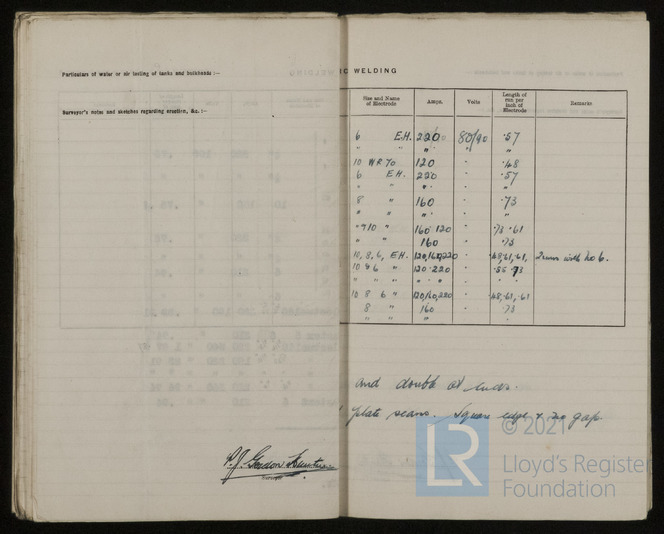 Particulars of water or air testing of tanks and bulkheads :—
Surveyor's notes and sketches regarding erection, &c. :—
IC WELDING
Size and Name of Electrode Amps. Volts Length of run per inch of Electrode Remarks
6 E.H. 220 80/90 .57
" " " " "
10 WR70 120 " .48
6 E.H. 220 " .57
" " " " "
8 " 160 " .73
" " " " "
" 710 " 160 120 " .73 .61
" " 160 " .73
10, 8, 6, E.H. 120,160,220 " .48,.61,.61, 2 runs with No 6.
10 8 6 " 120.220 " .55 .73
" " " " " "
10 8 6 " 120,160,220 " .48,.61,.61
8 " 160 " .73
" " " "
and double at ends.
plate seams. Square edge & no gap
P.J. Gordon
Surveyor
LR
© 2021
Lloyd's Register
Foundation